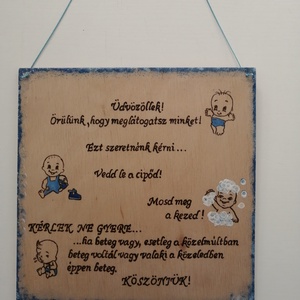 Üdvözöllek!
Örülünk, hogy meglátogatsz minket!
Ezt szeretnénk kérni...
Vedd le a cipőd!
Mosd meg
a kezed!
KÉRLEK NE GYERE...
...ha beteg vagy, esetleg a közelmúltban
beteg voltál vagy valaki a közeledben
éppen beteg.
KÖSZÖNJÜK!